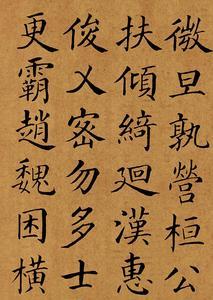 微旦孰營桓公
扶傾綺廻漢惠
俊乂密勿多士
更霸趙魏困橫